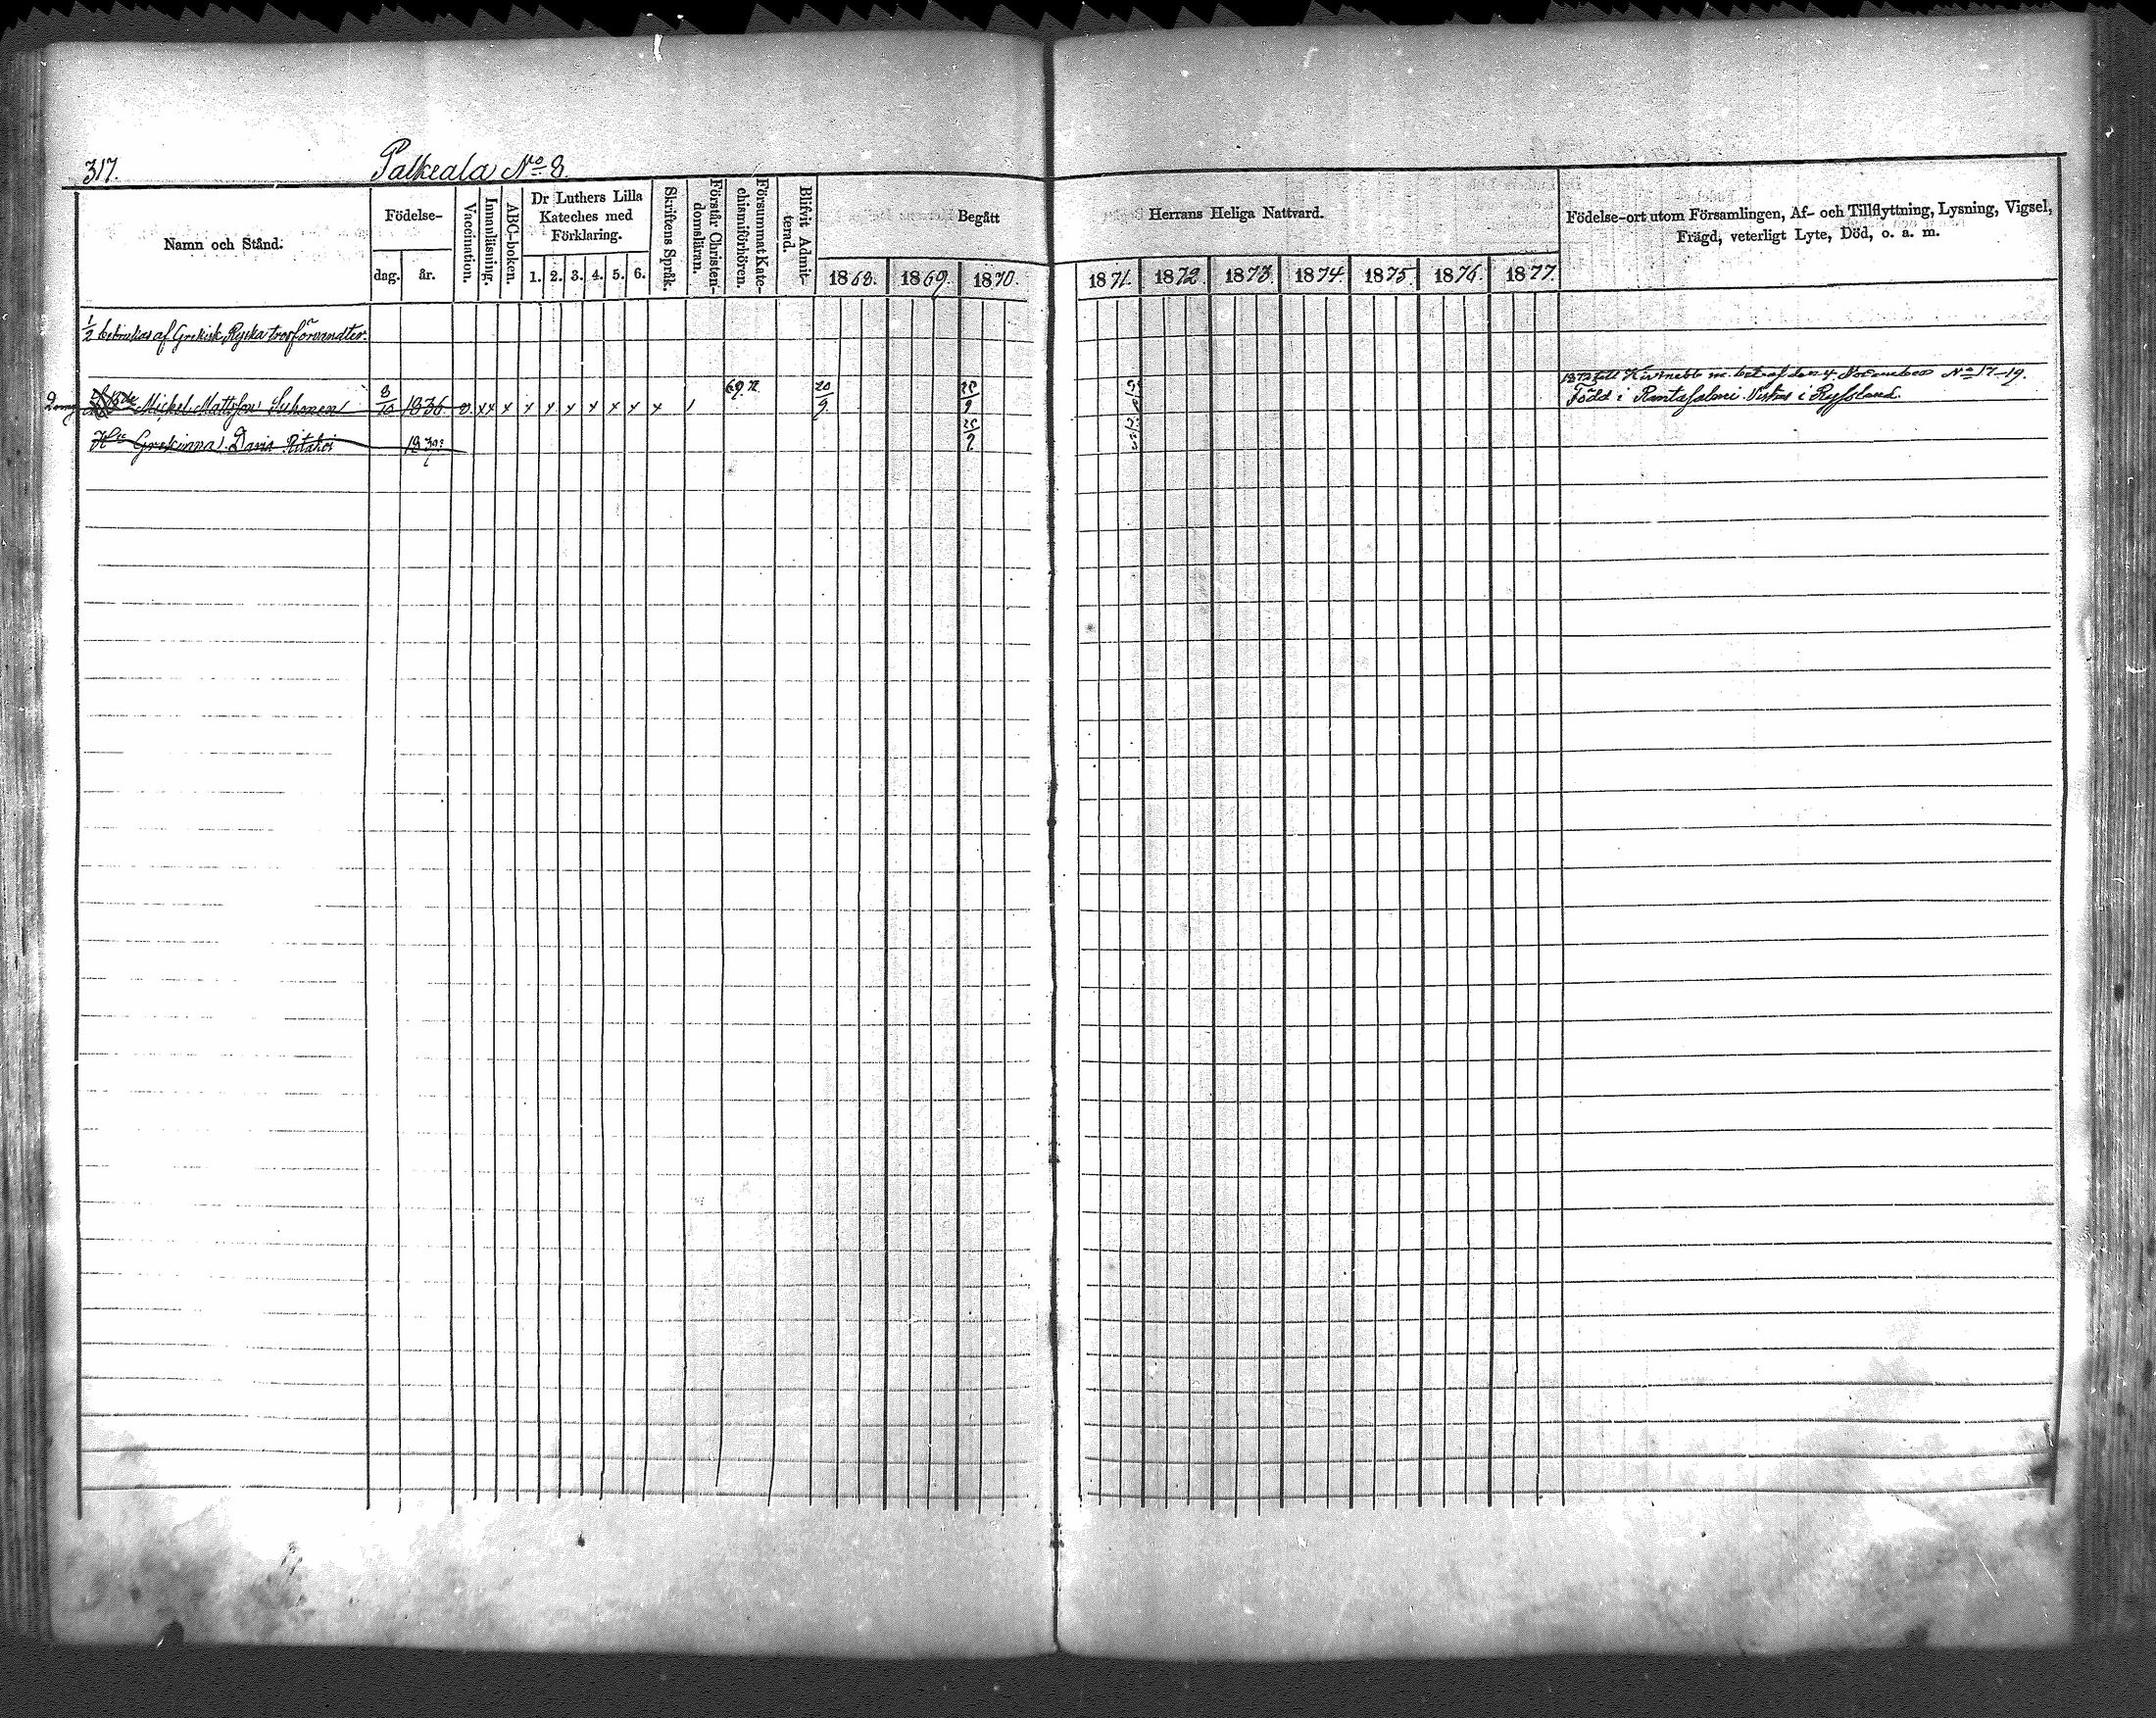 317.
Palkeala No 8.
Namn och Stånd.
Födelse-
dag. år.
Vaccination.
Innanläsning.
ABC-boken.
Dr Luthers Lilla
Kateches med
Förklaring.
1. 2. 3. 4. 5. 6.
Skriftens Språk.
Förstår Christen-
domsläran.
Försummat Kate-
chismiförhören.
Blifvit Admit-
terad.
Begått
1868. 1869. 1870.
Herrans Heliga Nattvard.
1871. 1872. 1873. 1874. 1875. 1876. 1877.
Födelse-ort utom Församlingen, Af- och Tillflyttning, Lysning, Vigsel,
Frägd, veterligt Lyte, Död, o. a. m.
1/2 bebrukas af Grekisk Ryska trosförvandter.
Mickel Mattsson Suhonen 8/10 1836 v. x x x x x x x x x x 1 69. 20/9 25/9
1872 till Kivineb m. bet. af den 4 November No 17-19.
Född i i Ryssland.
Hu Grekinna Daria 25/9